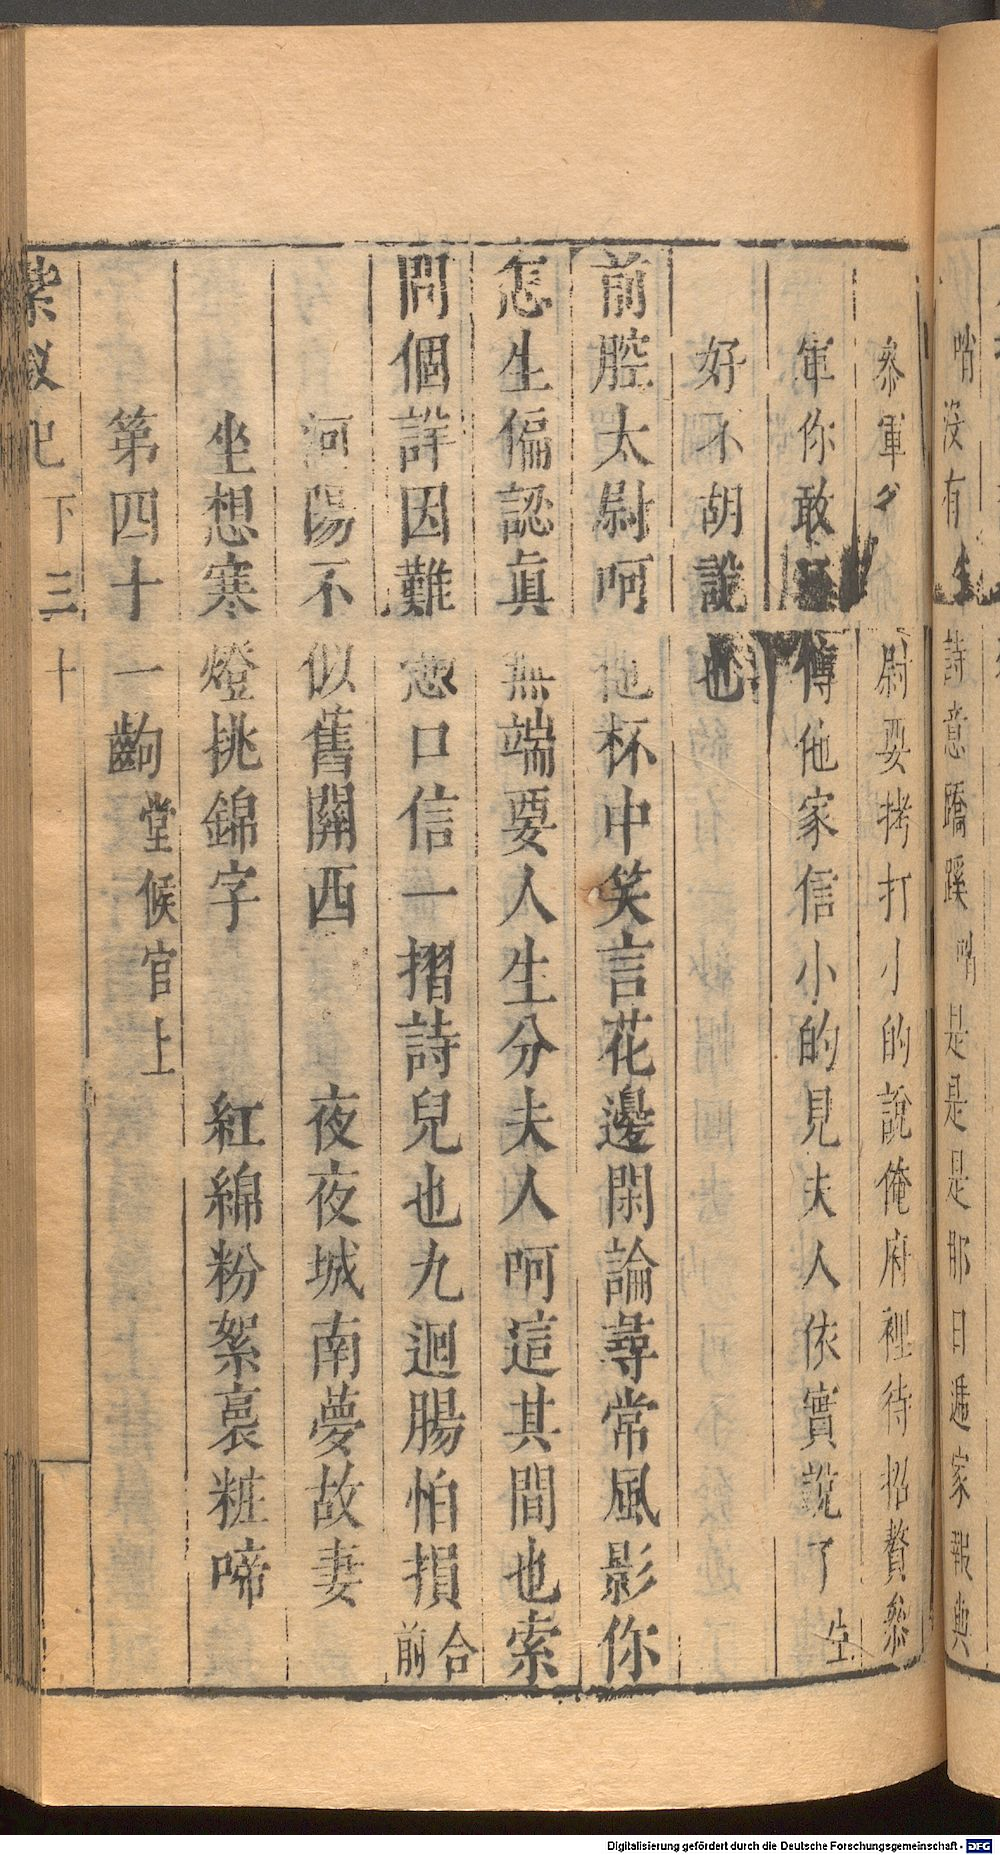 哨沒有生詩意蹻蹊哨是是是那日遞家報與
叅軍尉要拷打小的說俺府裡待招贅叅
軍你敢傳他家信小的見夫人依實說了生
好不胡說也
前腔太尉呵他杯中笑言花邊閑論尋常風影你
怎生偏認眞無端要人生分夫人呵這其間也索
問個詳因難憑口信一摺詩兒也九迴腸怕損合前
河陽不似舊關西　夜夜城南夢故妻
坐想寒燈挑錦字　紅綿粉絮裛粧啼
第四十一齣堂候官上
紫釵記下三十
Digitalisierung gefördert durch die Deutsche Forschungsgemeinschaft - DFG